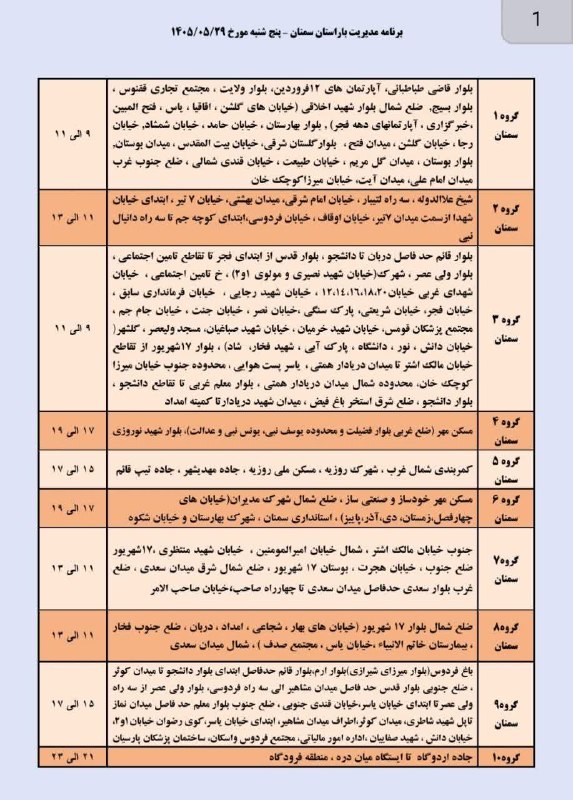 1
برنامه مدیریت باراستان سمنان - پنج شنبه مورخ ۱۴۰۵/۰۵/۲۹
گروه ۱
سمنان
بلوار قاضی طباطبائی، آپارتمان های ۱۲فروردین، بلوار ولایت ، مجتمع تجاری ققنوس ،
بلوار بسیج، ضلع شمال بلوار شهید اخلاقی (خیابان های گلشن ، اقاقیا ، یاس ، فتح المبین
،خبرگزاری ، آپارتمانهای دهه فجر) , بلوار بهارستان ، خیابان حامد ، خیابان شمشاد، خیابان
رجا ، خیابان گلشن ، میدان فتح ، بلوارگلستان شرقی، خیابان بیت المقدس، میدان بوستان,
بلوار بوستان ، میدان گل مریم ، خیابان طبیعت ، خیابان قندی شمالی ، ضلع جنوب غرب
میدان امام علی، میدان آیت، خیابان میرزاکوچک خان
۹ الی ۱۱
گروه ۲
سمنان
شیخ علاالدوله ، سه راه لتیبار ، خیابان امام شرقی، میدان بهشتی، خیابان ۷ تیر ، ابتدای خیابان
شهدا ازسمت میدان ۷تیر، خیابان اوقاف ، خیابان فردوسی،ابتدای کوچه جم تا سه راه دانیال
نبی
۱۱ الی ۱۳
گروه ۳
سمنان
بلوار قائم حد فاصل دربان تا دانشجو ، بلوار قدس از ابتدای فجر تا تقاطع تامین اجتماعی ،
بلوار ولی عصر ، شهرک(خیابان شهید نصیری و مولوی ۱و۲) ، خ تامین اجتماعی ، خیابان
شهدای غربی خیابان۱۲،۱۴،۱۶،۱۸،۲۰ ، خیابان شهید رجایی ، خیابان فرمانداری سابق ,
خیابان فجر، خیابان شریعتی، پارک سنگی ،خیابان نصر ، خیابان جنت ، خیابان جام جم ،
مجتمع پزشکان قومس، خیابان شهید خرمیان ، خیابان شهید صباغیان، مسجد ولیعصر ، گلشهر(
خیابان دانش ، نور ، دانشگاه ، پارک آبی ، شهید فخار، شاد) ، بلوار ۱۷شهریور از تقاطع
خیابان مالک اشتر تا میدان دریادار همتی ، یاسر پست هوایی ، محدوده جنوب خیابان میرزا
کوچک خان، محدوده شمال میدان دریادار همتی ، بلوار معلم غربی تا تقاطع دانشجو ،
بلوار دانشجو ، ضلع شرق استخر باغ فیض ، میدان شهید دریادارتا کمیته امداد
۹ الی ۱۱
گروه ۴
سمنان
مسکن مهر (ضلع غربی بلوار فضیلت و محدوده یوسف نبی، یونس نبی و عدالت)، بلوار شهید نوروزی
۱۷ الی ۱۹
گروه ۵
سمنان
کمربندی شمال غرب ، شهرک روزیه ، مسکن ملی روزیه ، جاده مهدیشهر ، جاده تیپ قائم
۱۵ الی ۱۷
گروه ۶
سمنان
مسکن مهر خودساز و صنعتی ساز ، ضلع شمال شهرک مدیران(خیابان های
چهارفصل،زمستان، دی،آذر،پاییز) ، استانداری سمنان ، شهرک بهارستان و خیابان شکوه
۱۷ الی ۱۹
گروه۷
سمنان
جنوب خیابان مالک اشتر ، شمال خیابان امیرالمومنین ، خیابان شهید منتظری ،۱۷شهریور
ضلع جنوب ، خیابان هجرت ، بوستان ۱۷ شهریور ، ضلع شمال شرق میدان سعدی ، ضلع
غرب بلوار سعدی حدفاصل میدان سعدی تا چهارراه صاحب،خیابان صاحب الامر
۱۱ الی ۱۳
گروه۸
سمنان
ضلع شمال بلوار ۱۷ شهریور (خیابان های بهار ، شجاعی ، امداد ، دربان ، ضلع جنوب فخار
، بیمارستان خاتم الانبیاء ،خیابان یاس ، مجتمع صدف ) ، شمال میدان سعدی
۱۱ الی ۱۳
گروه۹
سمنان
باغ فردوس(بلوار میرزای شیرازی)بلوار ارم،بلوار قائم حدفاصل ابتدای بلوار دانشجو تا میدان کوثر
، ضلع جنوبی بلوار قدس حد فاصل میدان مشاهیر الی سه راه فردوسی، بلوار ولی عصر از سه راه
ولی عصرتا ابتدای خیابان یاسر،خیابان قندی جنوبی ، ضلع جنوب بلوار معلم حد فاصل میدان نماز
تاپل شهید شاطری، میدان کوثر،اطراف میدان مشاهیر، ابتدای خیابان یاسر،کوی رضوان خیابان ۱و۲،
خیابان دانش ، شهید صفاییان ،اداره امور مالیاتی، مجتمع فردوس واسکان، ساختمان پزشکان پارسیان
۱۵ الی ۱۷
گروه۱۰
جاده اردوگاه تا ایستگاه میان دره ، منطقه فرودگاه
۲۱ الی ۲۳